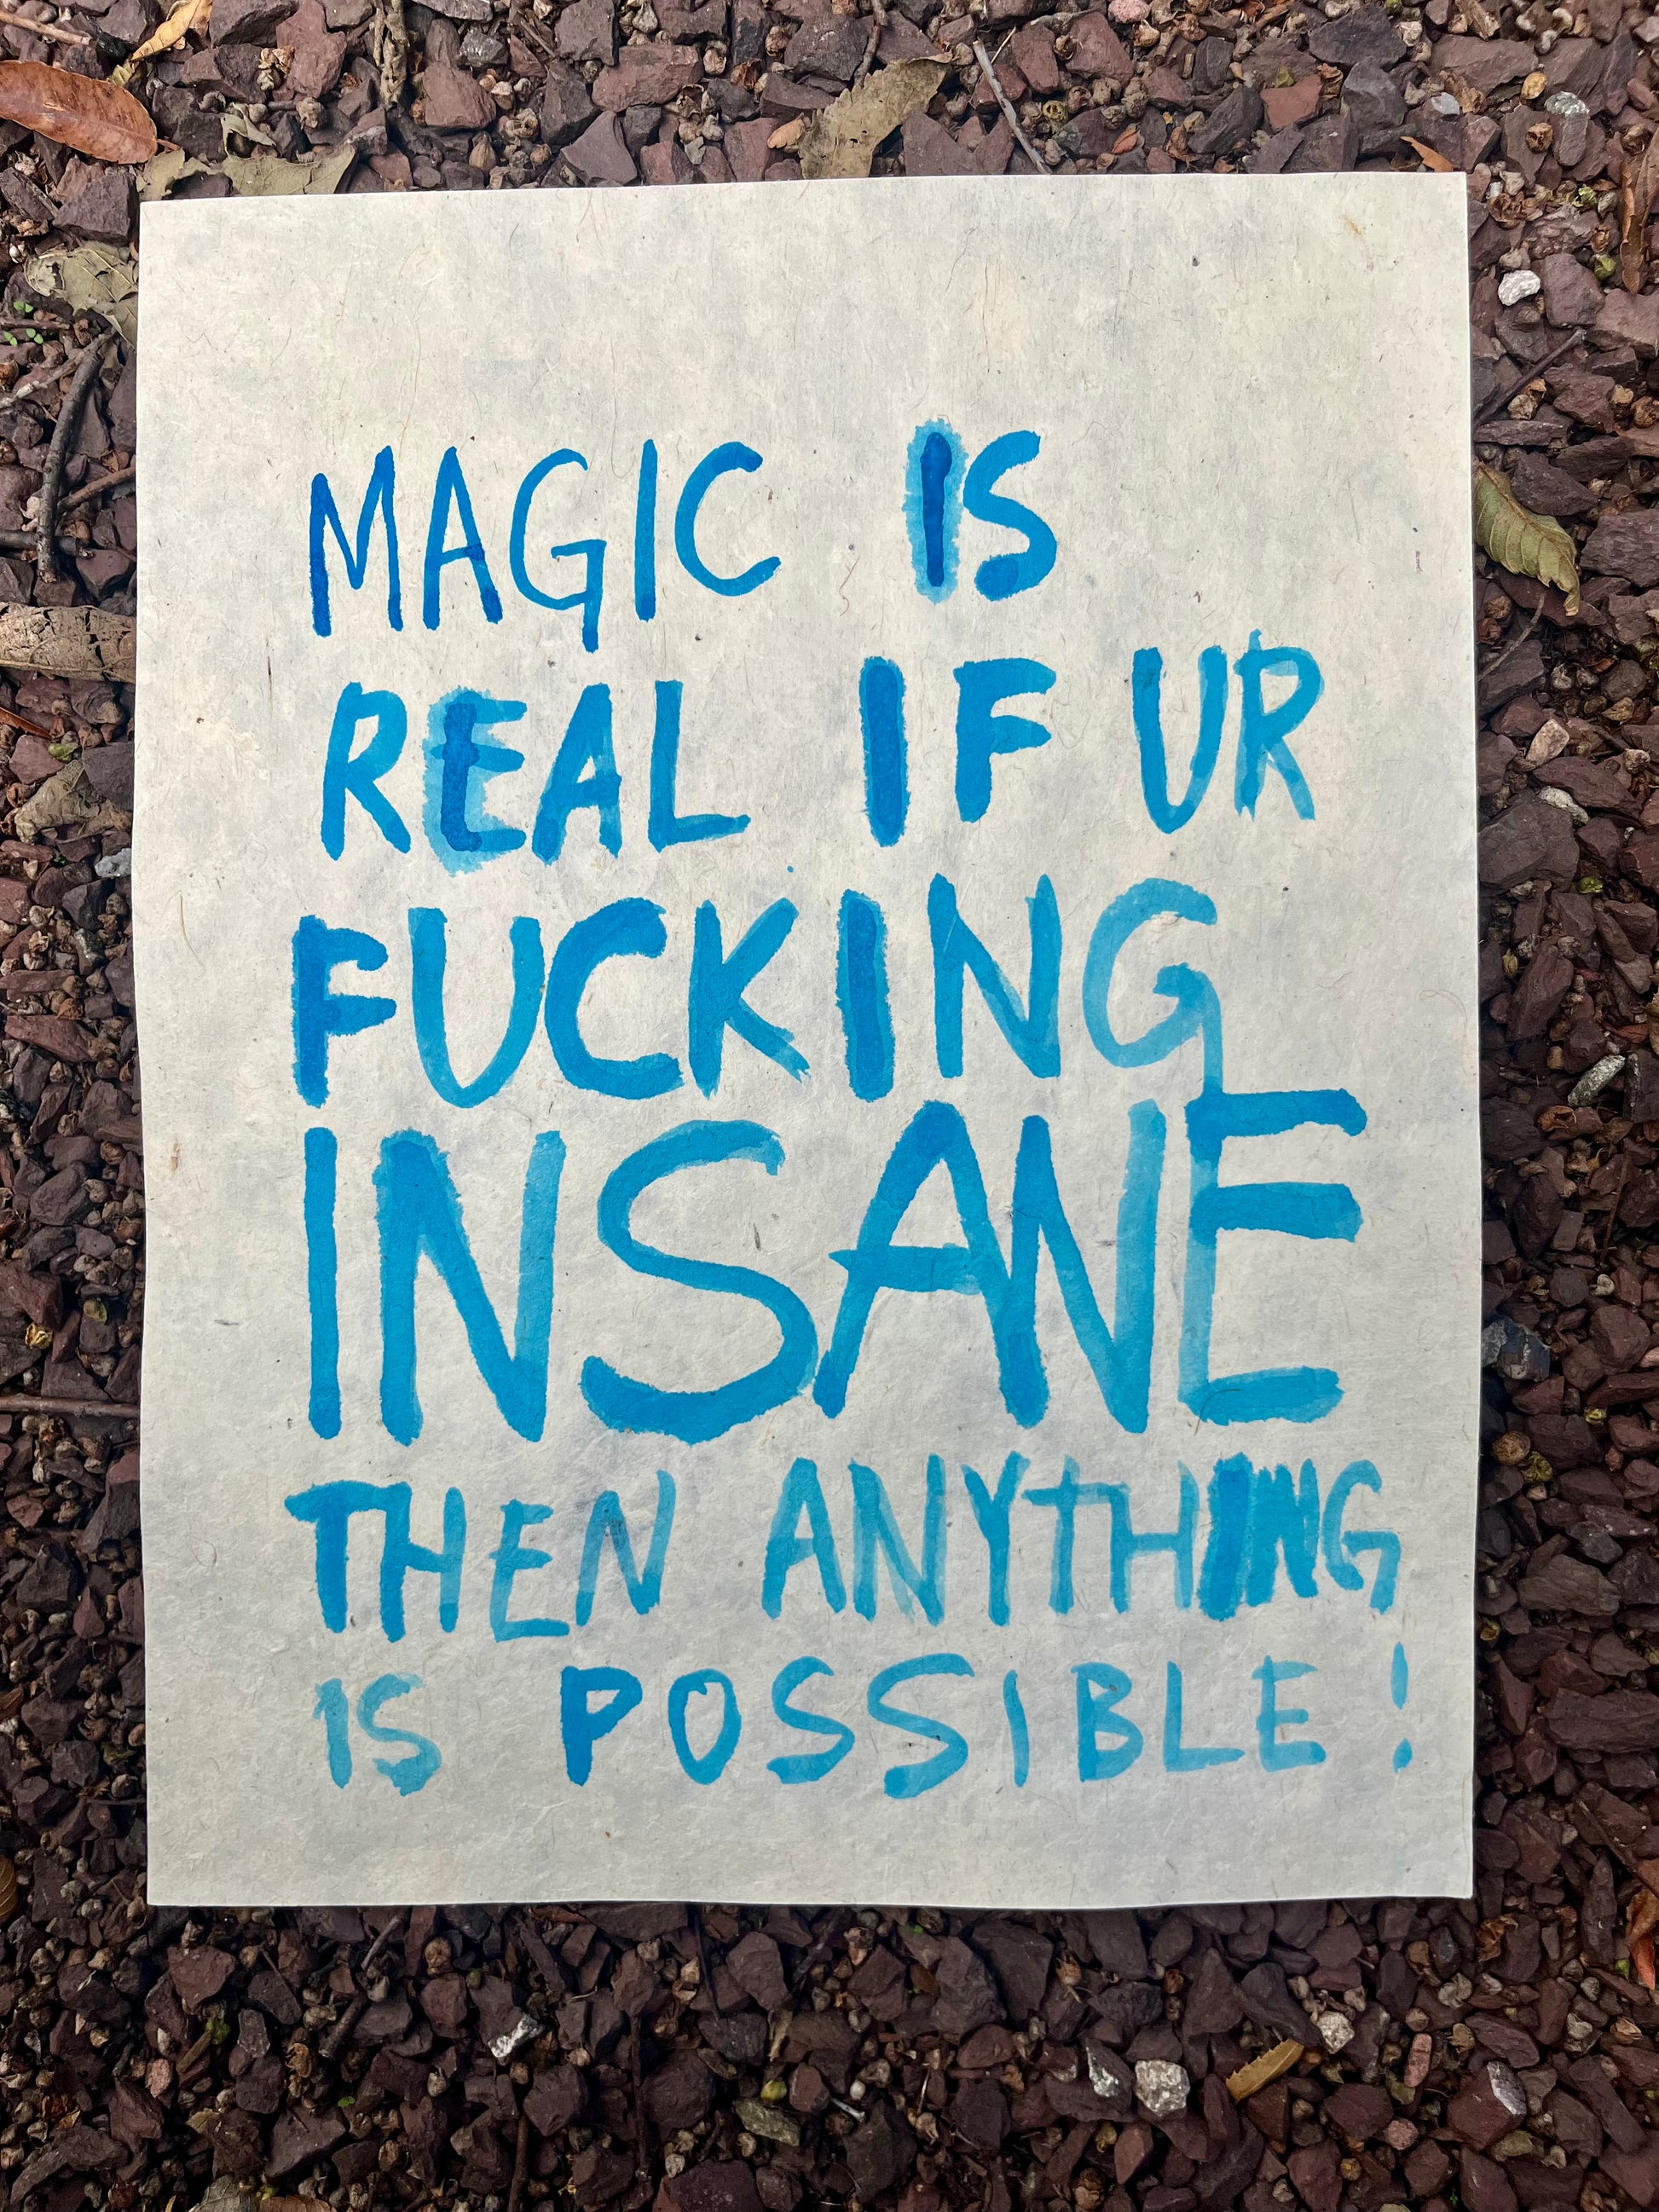 MAGIC IS
REAL IF UR
FUCKING
INSANE
THEN ANYTHING
IS POSSIBLE!